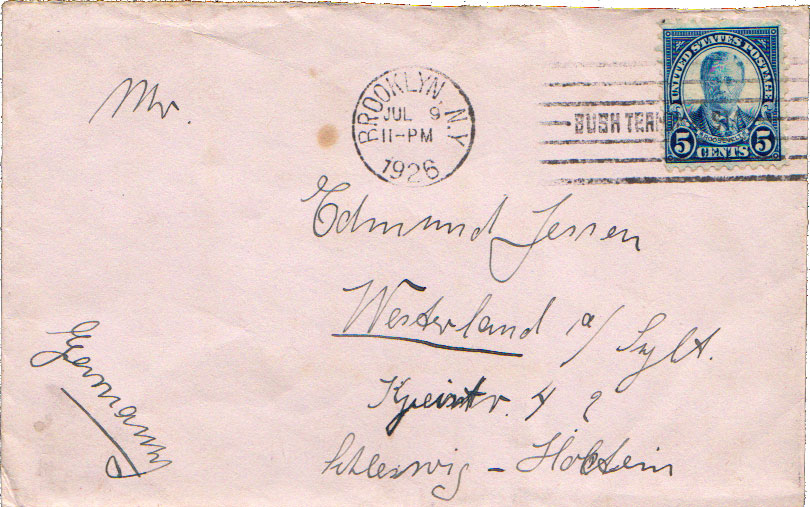 BROOKLYN, N.Y.
JUL 9
11-PM
1926
BUSH TERM
UNITED STATES POSTAGE
5 CENTS 5
Mr.
Edmund Jessen
Westerland a/ Sylt.
4
Schleswig - Holstein
Germany